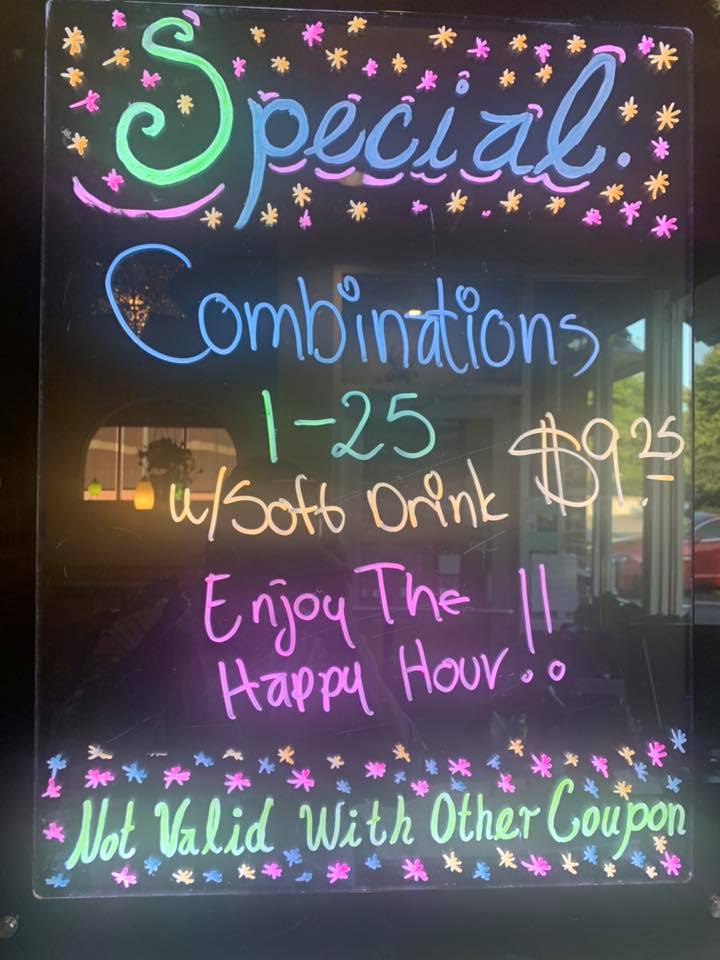 Special.
Combinations
1-25
w/Soft Drink $9.25
Enjoy The
Happy Hour!!
Not Valid With Other Coupon